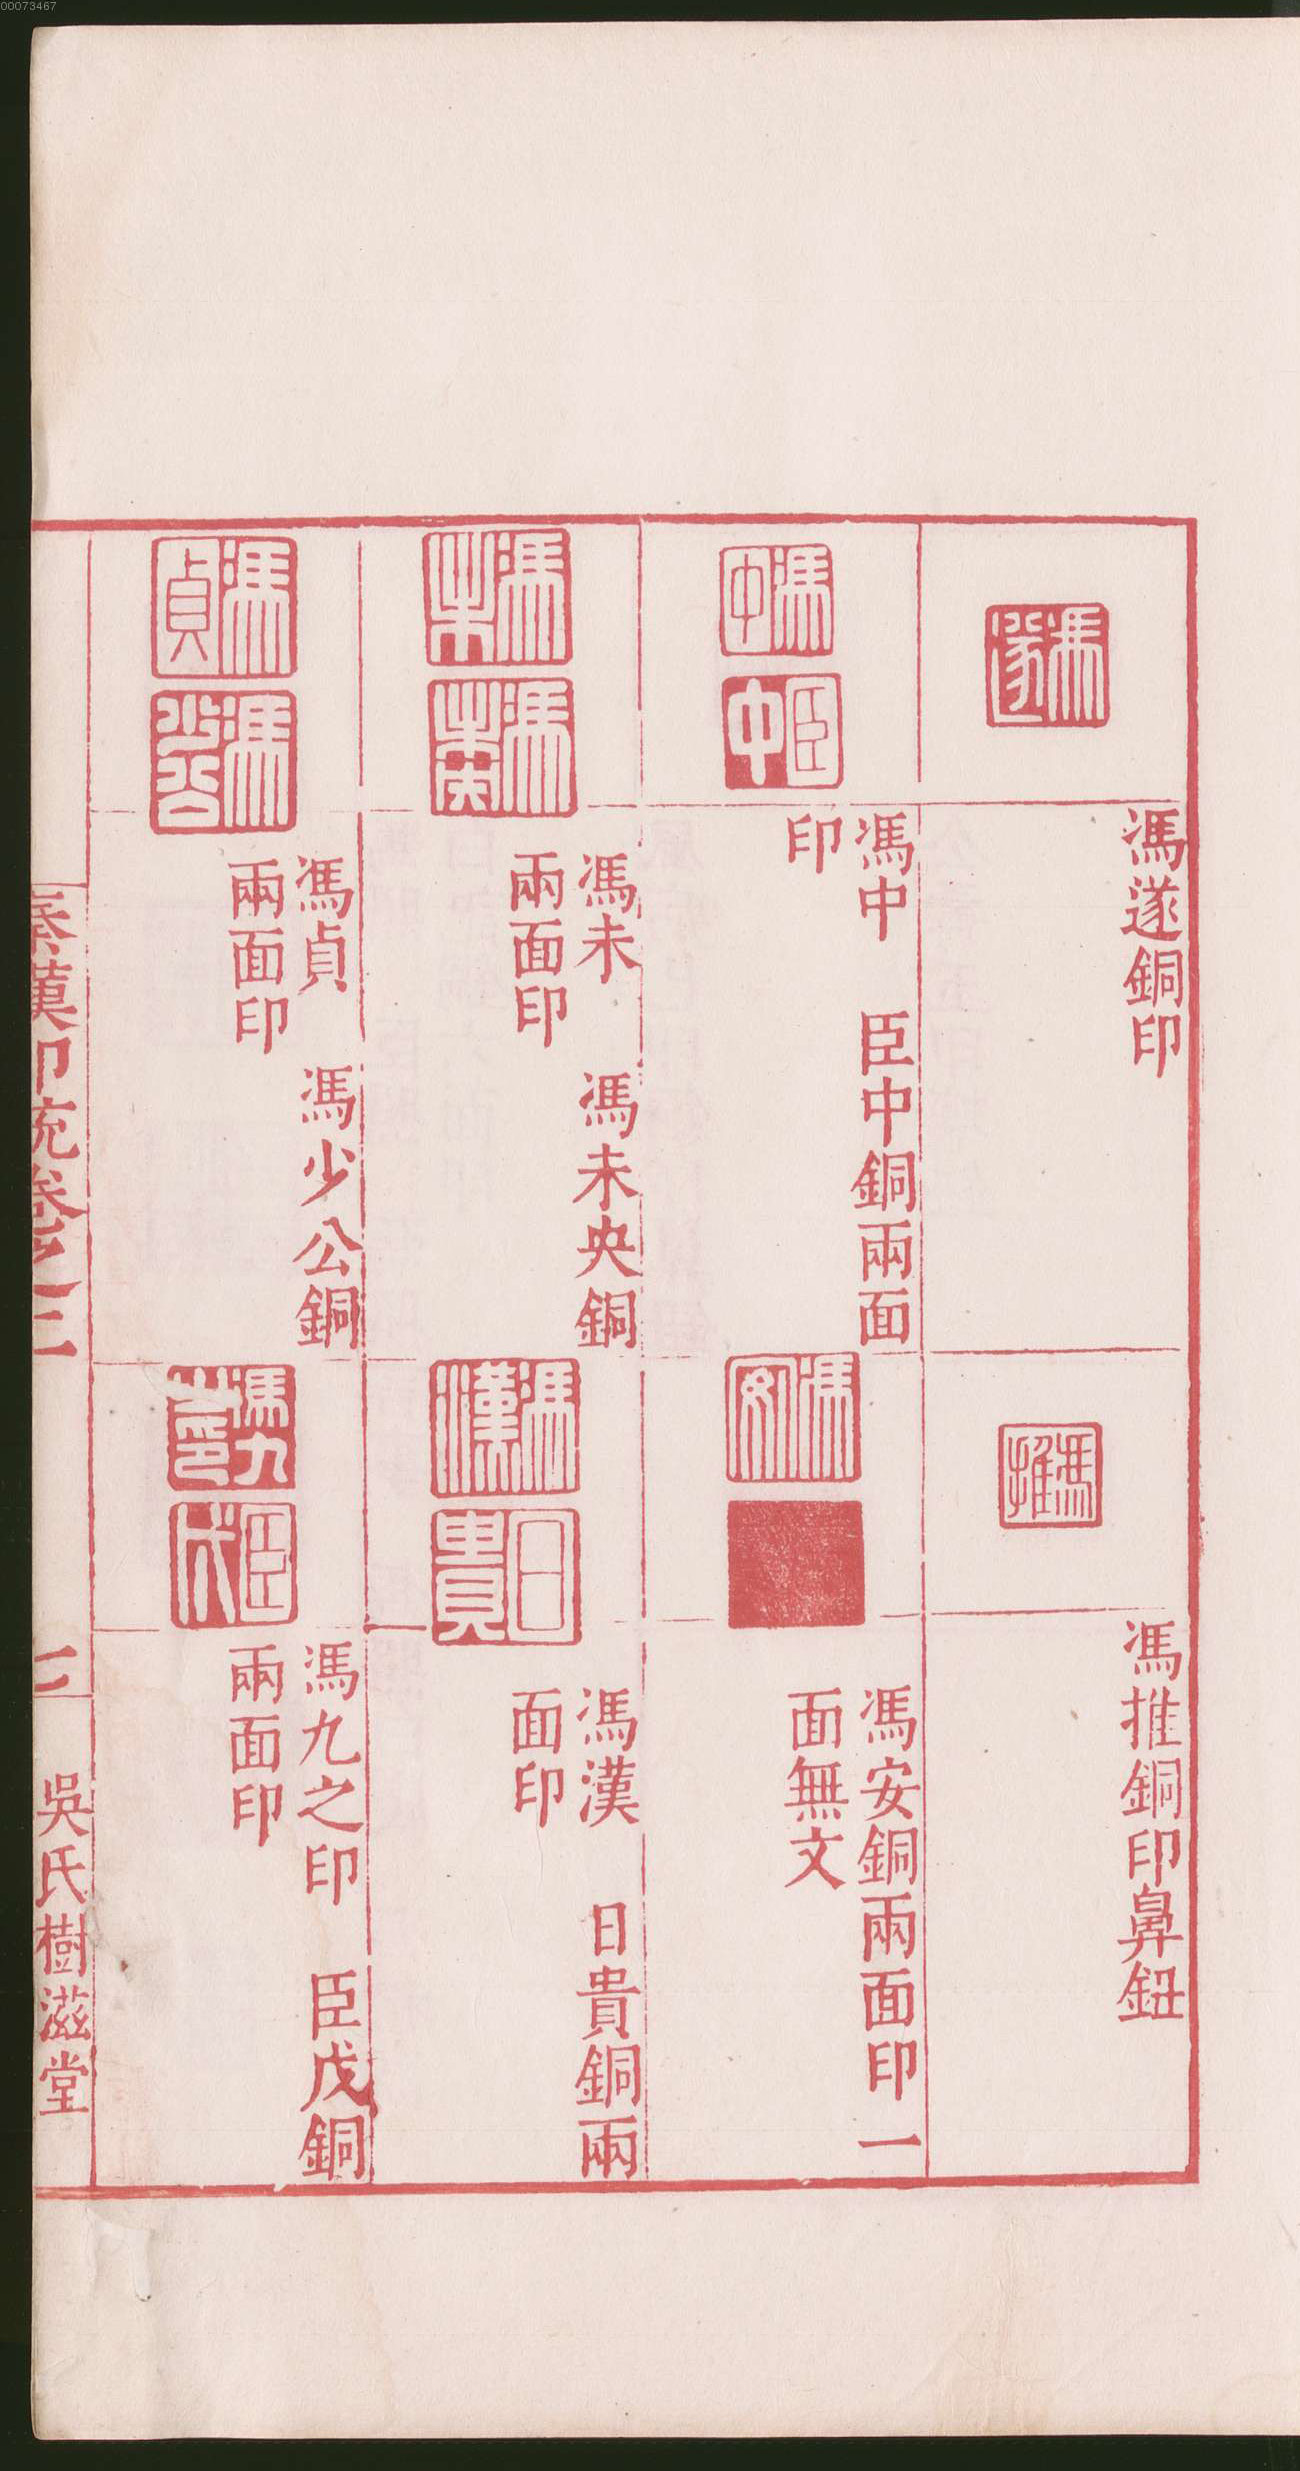 00073467
馮遂
馮遂銅印
馮推
馮推銅印鼻鈕
馮中
臣中
馮中　臣中銅兩面
印
馮安
馮安銅兩面印一
面無文
馮未
馮未央
馮未　馮未央銅
兩面印
馮漢
日貴
馮漢　日貴銅兩
面印
馮貞
馮少公
馮貞　馮少公銅
兩面印
馮九之印
臣戊
馮九之印　臣戊銅
兩面印
秦漢印統卷之二
三
吳氏樹滋堂